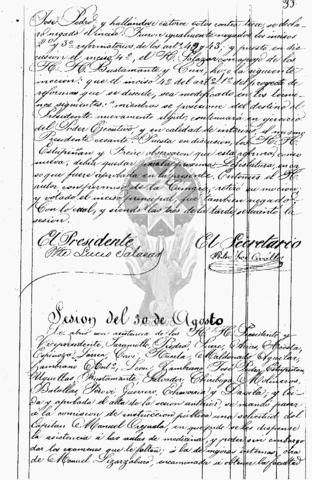 33
José, Pedro, y hallándose catorce votos contra trece, se declaró
negado el inciso. Fueron igualmente negados los incisos
2º y 3º reformatorios de los artºs 42 y 43, y puesto en dis-
cusion el inciso 4º, el H. Salazar con apoyo de los
H. H. Bustamante y Cueva, hizo la siguiente
mocion: que el inciso 42 del artº 1º del proyecto de
reformas que se discute, sea modificado en los térmi-
nos siguientes: "mientras se posesione del destino el
Presidente nuevamente elejido, continuará en ejercicio
del Poder Ejecutivo, y en calidad de interino, el mismo
Presidente cesante. Puesta en discusion, los H. H.
Estupiñan y observaron que esta adicion, como
nueva, debia quedar para la proxima Lejislatura, mas
no que fuese aprobada en la presente. Entónces el H.
autor, con permiso de la Cámara, retiró su mocion,
y votado el inciso principal, fué tambien negado.
Con lo cual, y siendo las tres de la tarde, se levantó la
sesion.
El Presidente El Secretario
Lucio Salazar
Sesion del 30 de Agosto
Se abrió con asistencia de los H. H. Presidente y
Vicepresidente, Acosta,
Espinoza, Cueva, Maldonado, Eguiluz,
Zambrano José Pedro, Estupiñan
Arguillas, Bustamante, Salvador, Chiriboga,
Batallas, Guerrero, Echeverria y Dávila; y lei-
da y aprobada el acta de la sesion anterior, se mandó pasar
á la comision de instruccion pública una solicitud del
Capitan Manuel en que pide se le dispense
la asistencia á las aulas de medicina, y poder sin embargo
dar los examenes que le faltan; á la de negocios internos, otra
de Manuel Lizarzaburu, encaminada á obtener la facultad